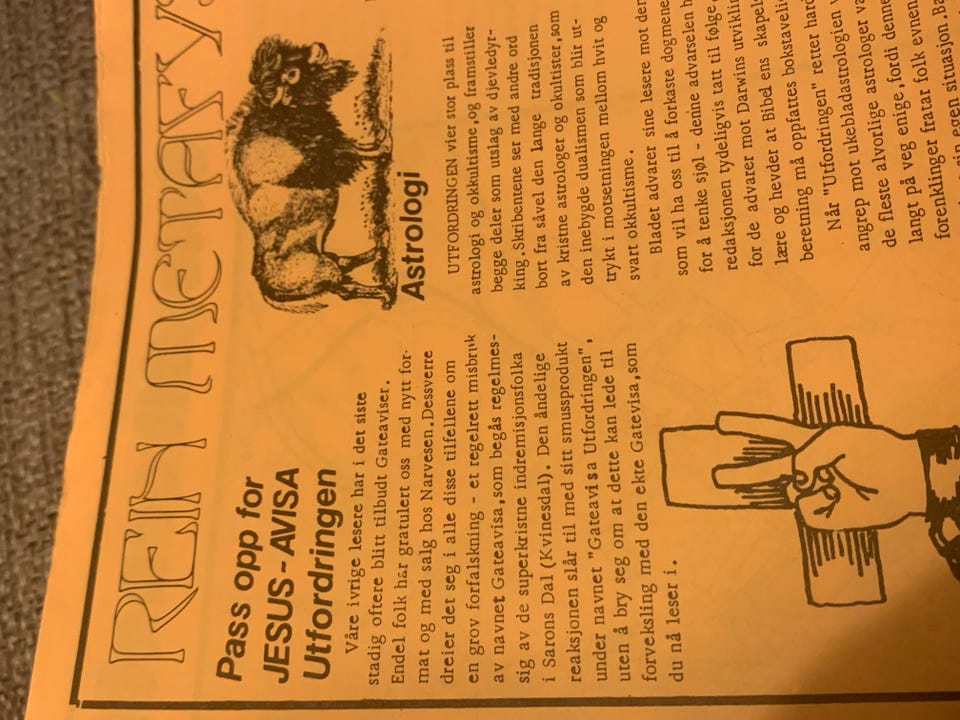 REN METAFYS
Pass opp for
JESUS-AVISA
Utfordringen
Våre ivrige lesere har i det siste
stadig oftere blitt tilbudt Gateaviser.
Endel folk har gratulert oss med nytt for-
mat og med salg hos Narvesen.Dessverre
dreier det seg i alle disse tilfellene om
en grov forfalskning - et regelrett misbruk
av navnet Gateavisa,som begås regelmes-
sig av de superkristne indremisjonsfolka
i Sarons Dal (Kvinesdal). Den åndelige
reaksjonen slår til med sitt smussprodukt
under navnet "Gateavisa Utfordringen",
uten å bry seg om at dette kan lede til
forveksling med den ekte Gatevisa,som
du nå leser i.
Astrologi
UTFORDRINGEN vier stor plass til
astrologi og okkultisme,og framstiller
begge deler som utslag av djevledyr-
king.Skribentene ser med andre ord
bort fra såvel den lange tradisjonen
av kristne astrologer og okultister,som
den inebygde dualismen som blir ut-
trykt i motsetningen mellom hvit og
svart okkultisme.
Bladet advarer sine lesere mot dem
som vil ha oss til å forkaste dogmene
for å tenke sjøl - denne advarselen h
redaksjonen tydeligvis tatt til følge,
for de advarer mot Darwins utviklin
lære og hevder at Bibel ens skapel
beretning må oppfattes bokstaveli
Når "Utfordringen" retter hard
angrep mot ukebladastrologien v
de fleste alvorlige astrologer va
langt på veg enige,fordi denne
forenklinger fratar folk evnen
sin egen situasjon.Ba